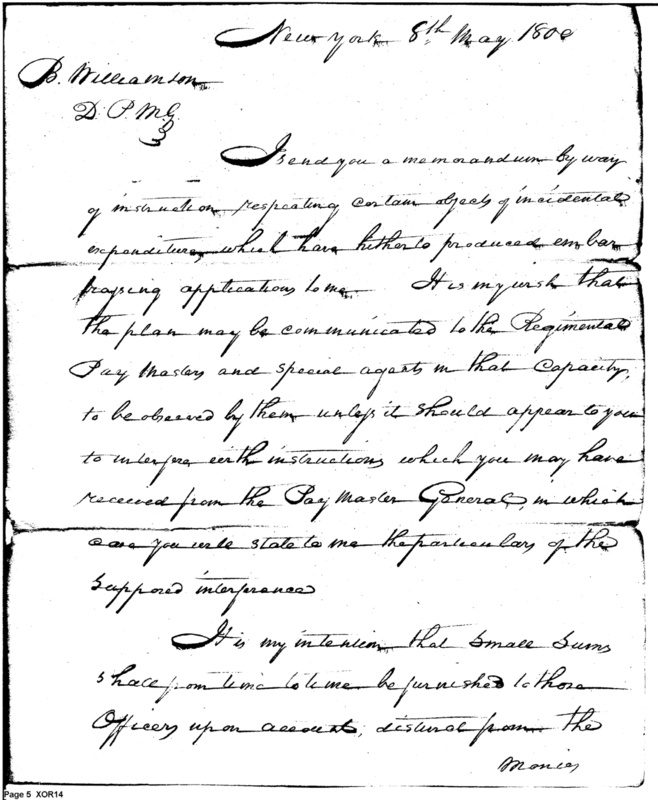 New York 8th May 1800
B. Williamson
D. P. M. G.
I send you a memorandum by way
of instruction respecting certain objects of incidental
expenditure, which have hitherto produced embar
rassing applications to me. It is my wish that
the plan may be communicated to the Regimental
Pay Masters and special agents in that capacity,
to be observed by them unless it should appear to you
to interfere with instructions which you may have
received from the Pay Master General, in which
case you will state to me the particulars of the
supposed interference
It is my intention that small sums
shall from time to time be furnished to those
Officers upon account, distinct from the
Monies
Page 5 XOR14